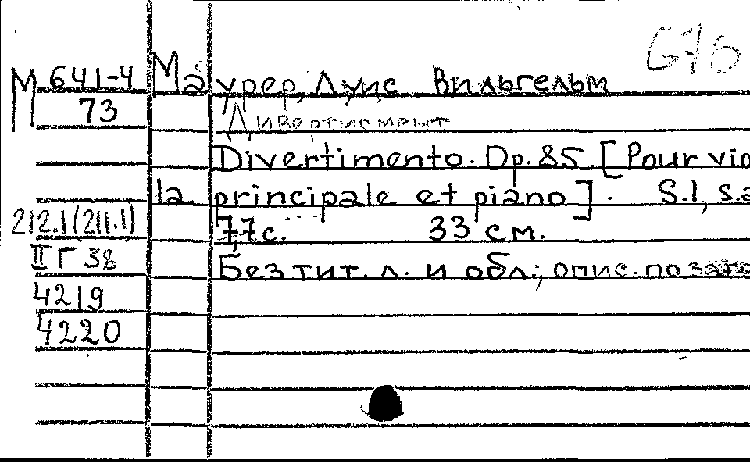 676
М 641-4 Маурер, Луис Вильгельм
73 Дивертисмент
Divertimento. Op. 85. [Pour vio
la principale et piano]. S.l., s.a
212.1(211.1) 7,7 с. 33 см.
II Г 38 Без тит. л. и обл.; опис. по
4219
4220